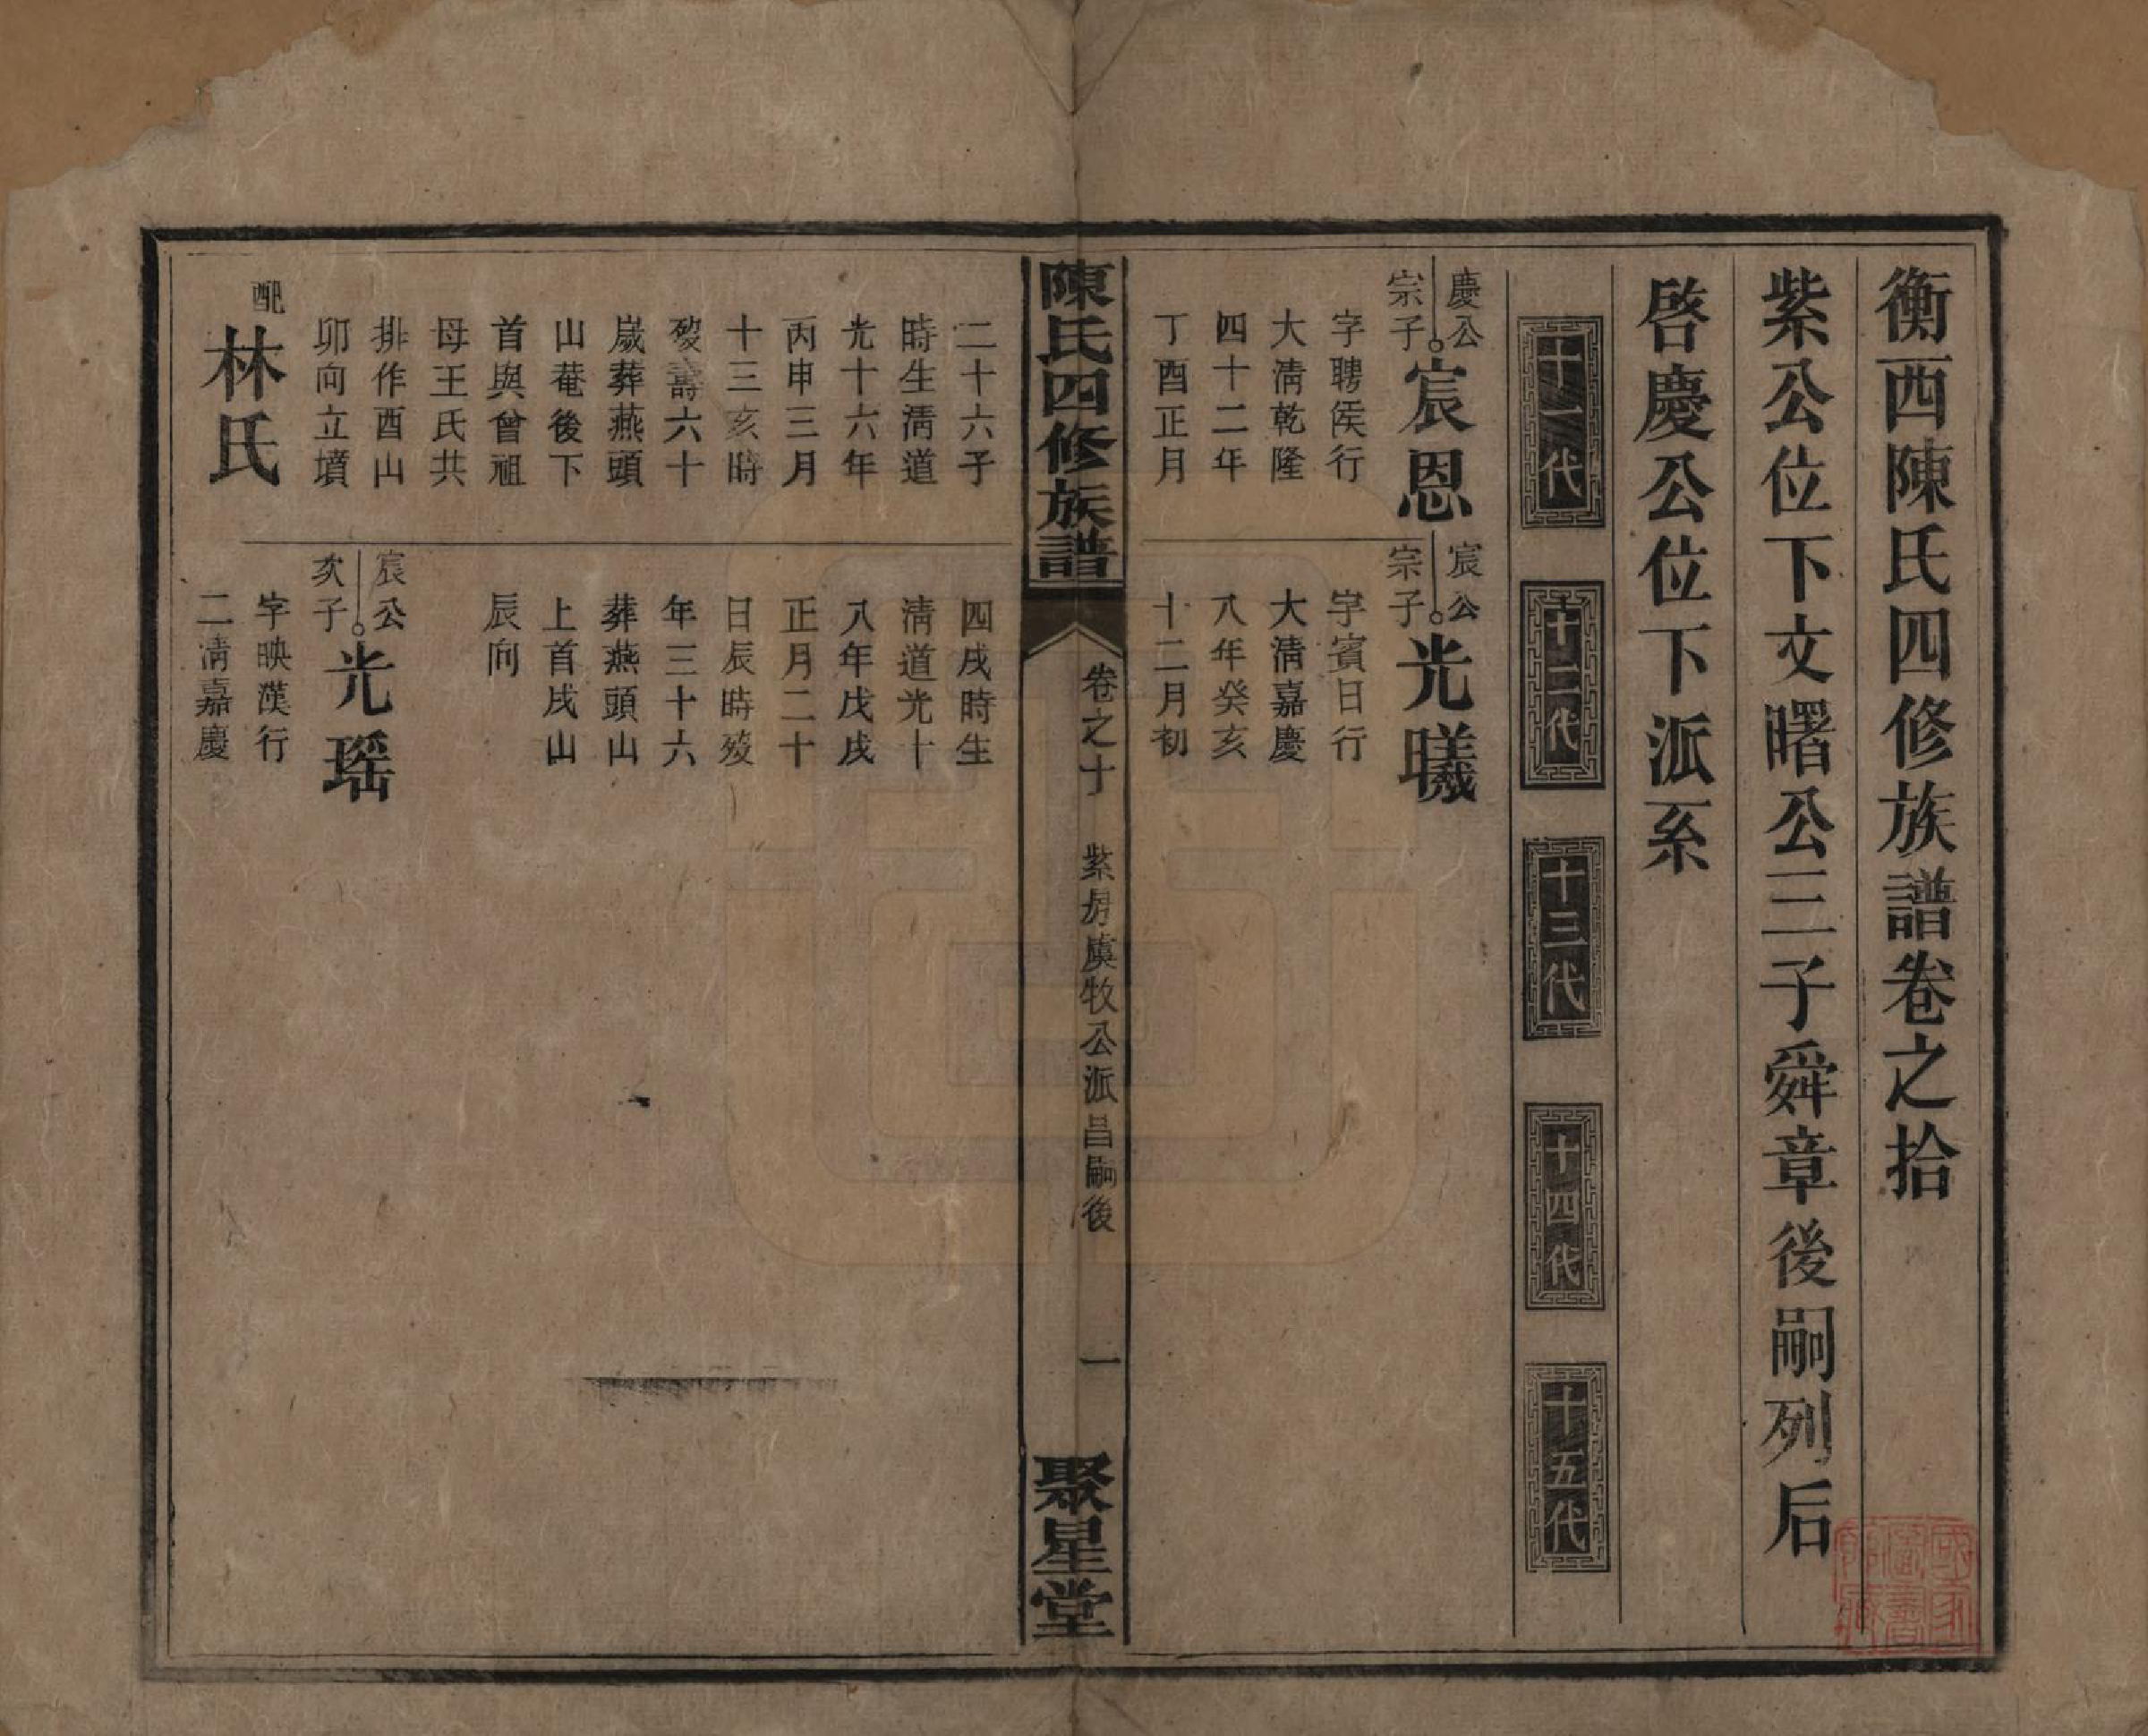 衡西陳氏四修族譜卷之拾
紫公位下文曙公三子舜章後嗣列后
啓慶公位下派系
十一代
十二代
十三代
十四代
十五代
慶公
宗子
宸恩
字聘侯行
大淸乾隆
四十二年
丁酉正月
宸公
宗子
光曦
字賓日行
大淸嘉慶
八年癸亥
十二月初
陳氏四修族譜
卷之十
紫房虞牧公派昌嗣後
一
聚星堂
二十六子
時生淸道
光十六年
丙申三月
十三亥時
歿壽六十
歲葬燕頭
山菴後下
首與曾祖
母王氏共
排作酉山
卯向立墳
配
林氏
四戌時生
淸道光十
八年戊戌
正月二十
日辰時歿
年三十六
葬燕頭山
上首戌山
辰向
宸公
次子
光瑶
字映漢行
二淸嘉慶
國家圖書館藏